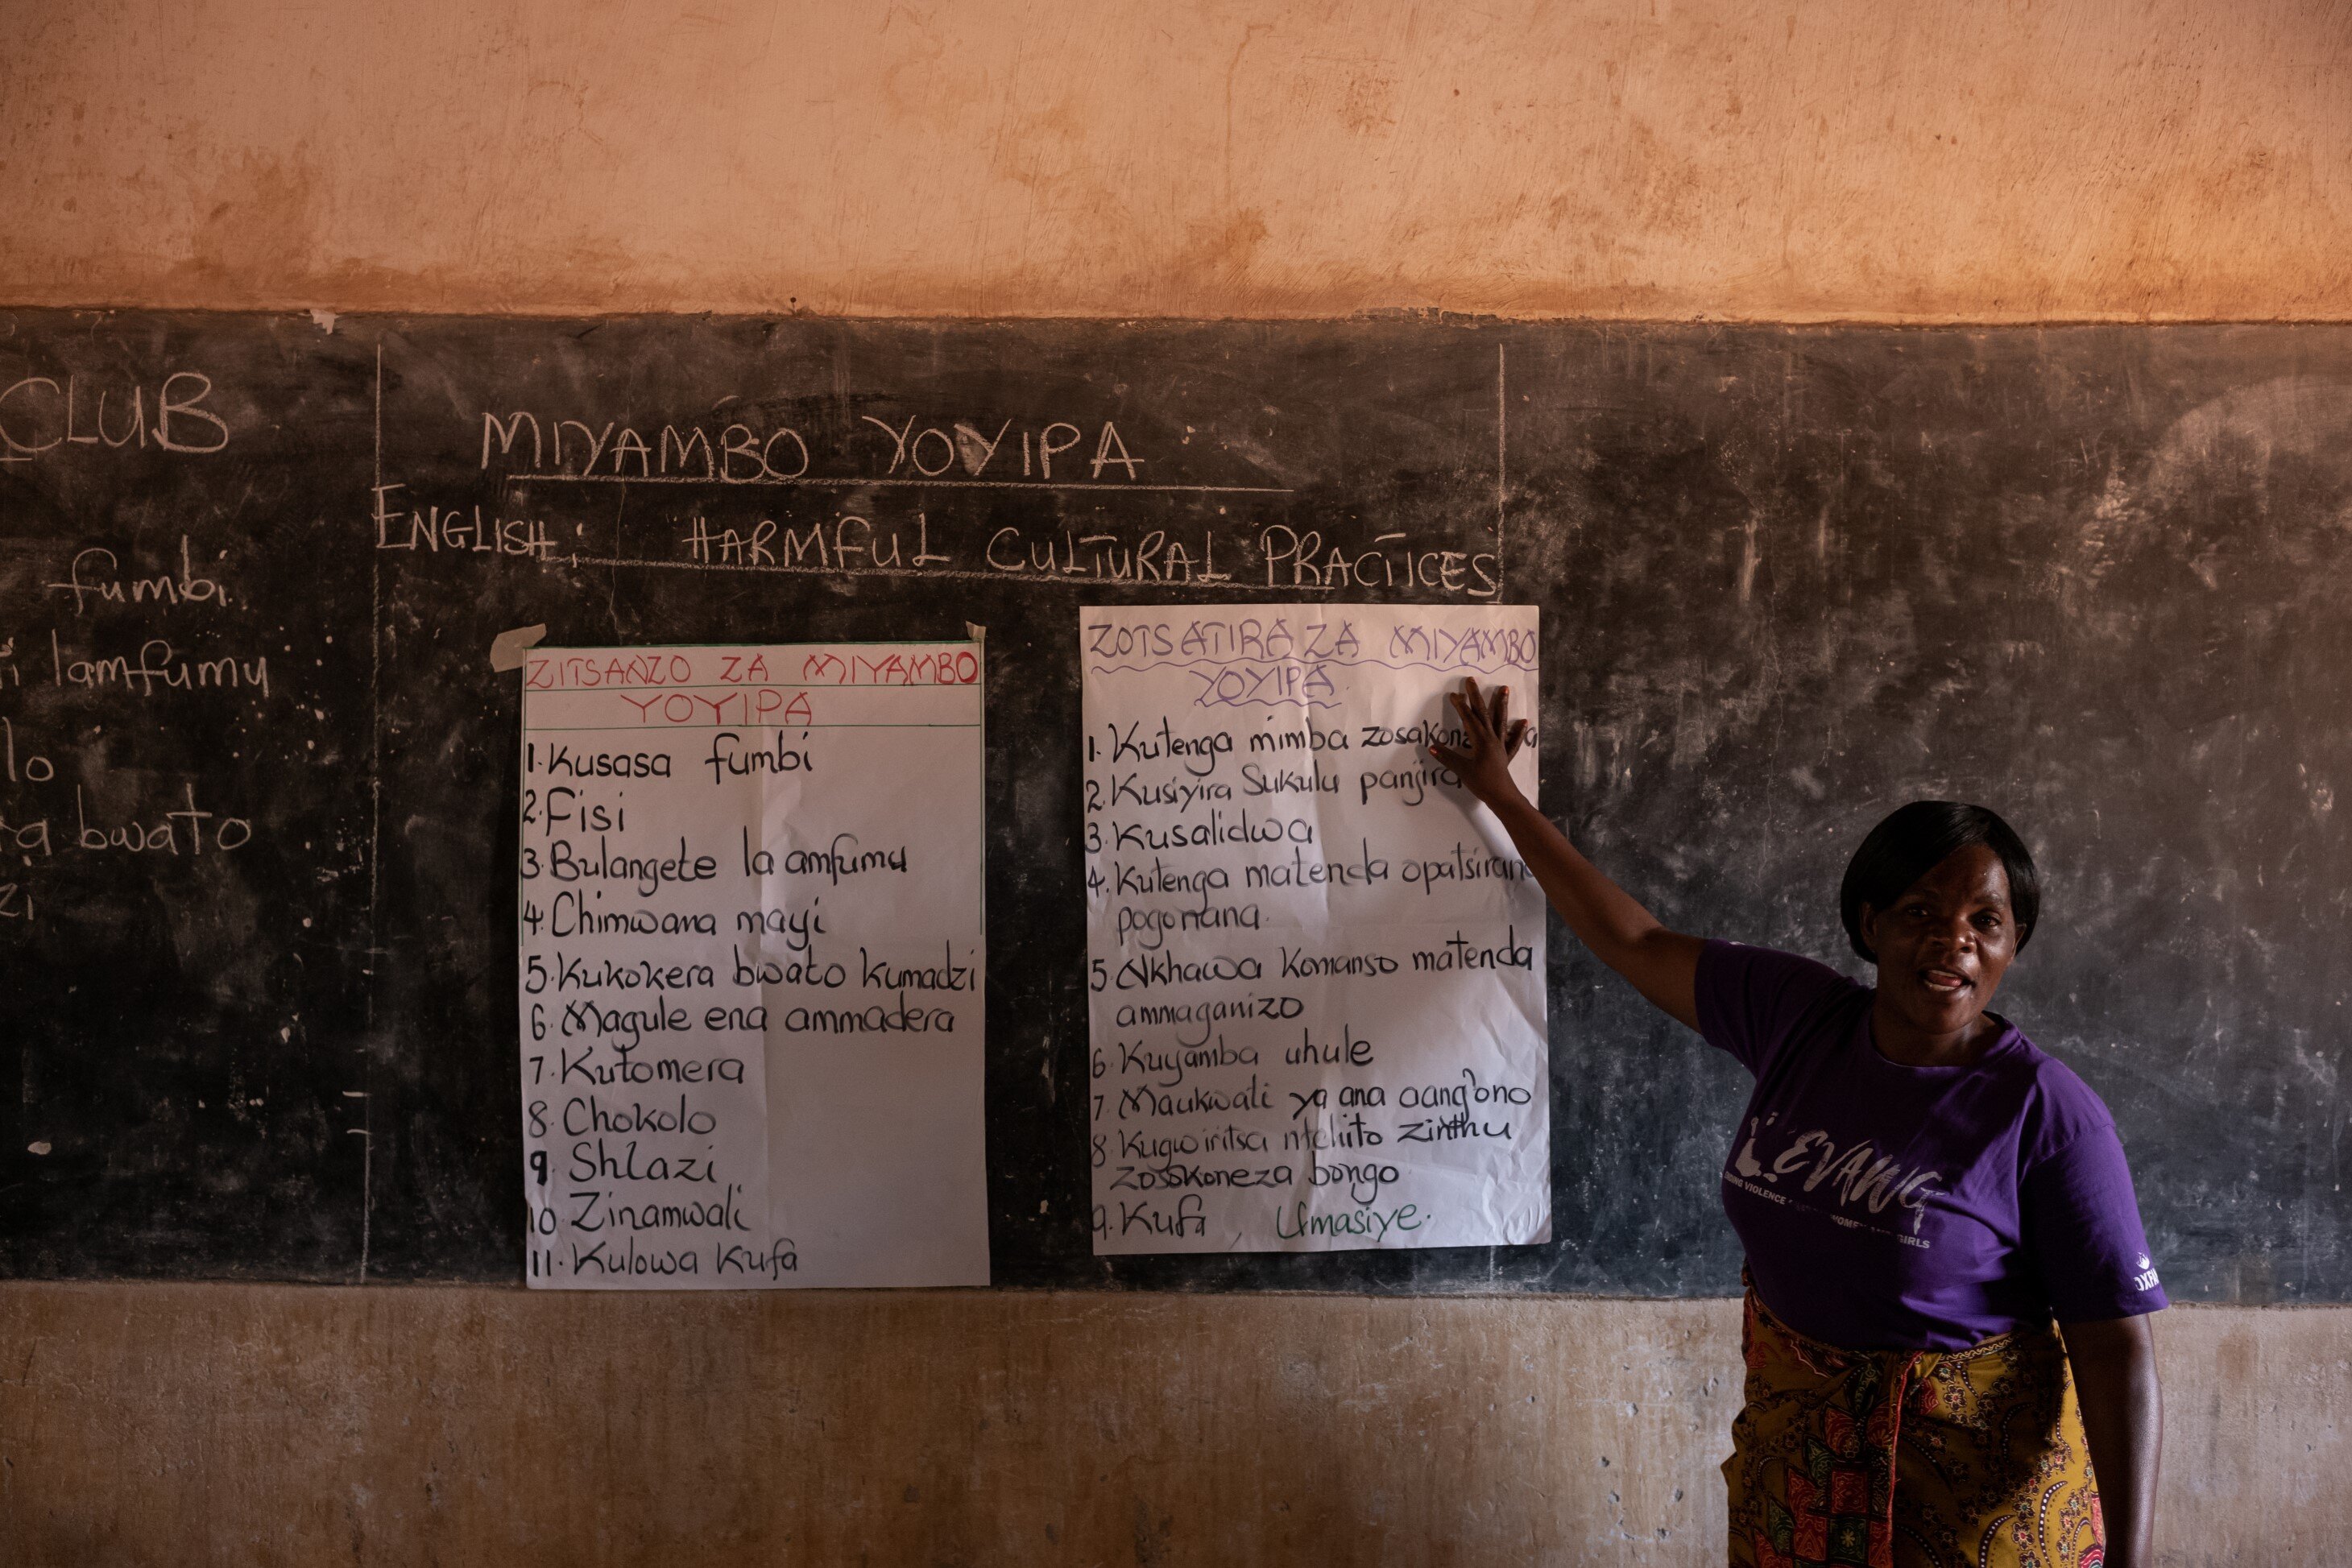 CLUB
fumbi
lamfumu
lo
bwato
zi
MIYAMBO YOYIPA
ENGLISH: HARMFUL CULTURAL PRACTICES
ZITSANZO ZA MIYAMBO
YOYIPA
1. Kusasa fumbi
2. Fisi
3. Bulangete la amfumu
4. Chimwana mayi
5. Kukokera bwato kumadzi
6. Magule ena ammadera
7. Kutomera
8. Chokolo
9 Shlazi
10 Zinamwali
11. Kulowa Kufa
ZOTSATIRA ZA MIYAMBO
YOYIPA.
1. Kutenga mimba
2. Kusiyira Sukulu
3. Kusalidwa
4. Kutenga matenda
pogonana.
5 Nkhawa komanso matenda
ammaganizo
6 Kuyamba uhule
7 Maukwati ya ana aang'ono
8 Kugwiritsa ntchito zinthu
zosokoneza bongo
9. Kufa, Umasiye.
EVAWG
VIOLENCE
GIRLS